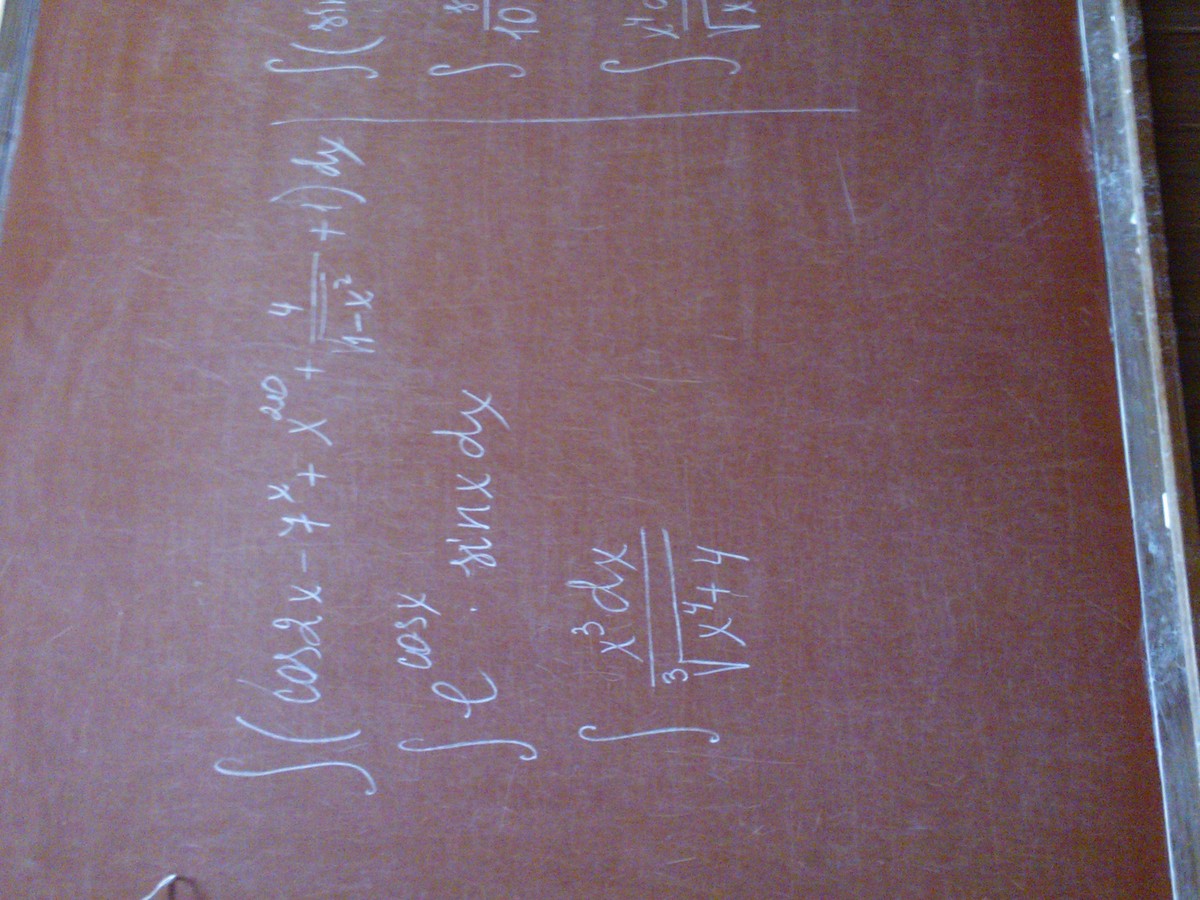 ∫(cos2x − 7^x + x^20 + 4/√(1−x²) + 1)dx
∫e^cosx · sinx dx
∫ x³dx / ∛(x⁴+4)
∫(sin
∫ 10
∫ x⁴ √x